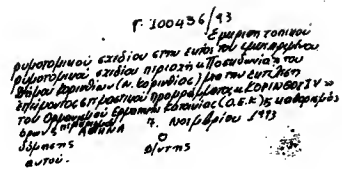 Γ. 100436/93
Έγκριση τοπικού
ρυμοτομικού σχεδίου στην εκτός του εγκεκριμένου
ρυμοτομικού σχεδίου περιοχή «Ποσειδωνία» του
Δήμου Κορινθίων (Ν. Κορινθίας) για την εκτέλεση
επείγοντος στεγαστικού προγράμματος «ΚΟΡΙΝΘΟΣ IV»
του Οργανισμού Εργατικής Κατοικίας (Ο.Ε.Κ) & καθορισμός
όρων & περιορισμών
δόμησης ΑΘΗΝΑ 7. Νοεμβρίου 1993
αυτού. Ο
Δ/ντης